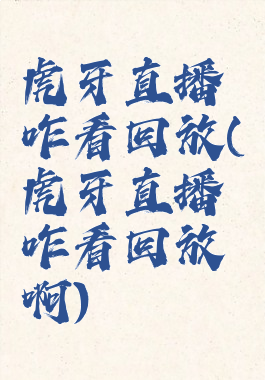 虎牙直播
咋看回放(
虎牙直播
咋看回放
啊)